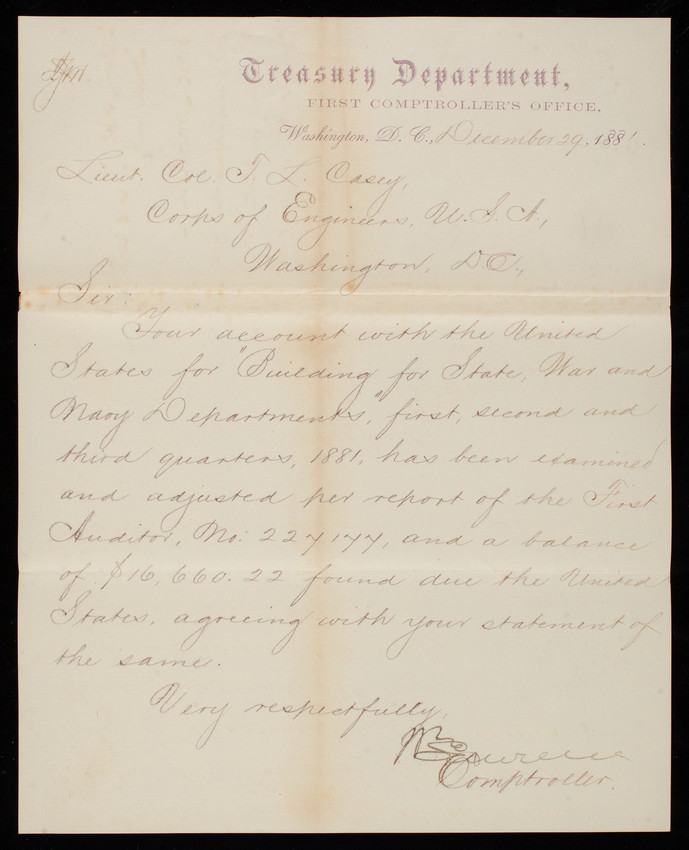 Treasury Department,
FIRST COMPTROLLER'S OFFICE,
Washington, D. C., December 29, 1881.
Lieut. Col. T. L. Casey,
Corps of Engineers, U. S. A.,
Washington, D. C.,
Sir:
Your account with the United
States for "Building for State, War and
Navy Departments," first, second and
third quarters, 1881, has been examined
and adjusted per report of the First
Auditor, No: 227177, and a balance
of $16,660.22 found due the United
States, agreeing with your statement of
the same.
Very respectfully,
Comptroller.